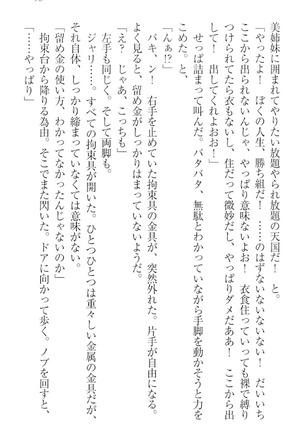 美姉妹に囲まれてやりたい放題やられ放題の天国だ！　と。
「やったよ！　ぼくの人生、勝ち組だ！　……のはずないないない！　だいいち
ここから出られないんじゃ、やっぱり意味ないよお！　衣食住っていっても裸で縛り
つけられてたら衣もないし、住だって微妙だし、やっぱりダメだああ！　ここから出
して！　出してくれよおお！」
せっぱ詰まって叫んだ。バタバタ、無駄とわかっていながら手脚を動かそうと力を
こめた。
「んぁ!?」
バキン！　右手を止めていた拘束具の金具が、突然外れた。片手が自由になる。
よく見ると、留め金がしっかりはまっていないようだ。
「え？　じゃあ、こっちも」
左手も同じく。そして両脚も。
ジャリ……。すべての拘束具が開いた。ひとつひとつは重々しい金属の金具だが、
それ自体、しっかり締まっていなくては意味がない。
「留め金の使い方、わかってなかったんじゃないのか」
拘束台から降りる為由。そこでまた閃いた。ドアに向かって歩く。ノブを回すと、
「……やっぱり」